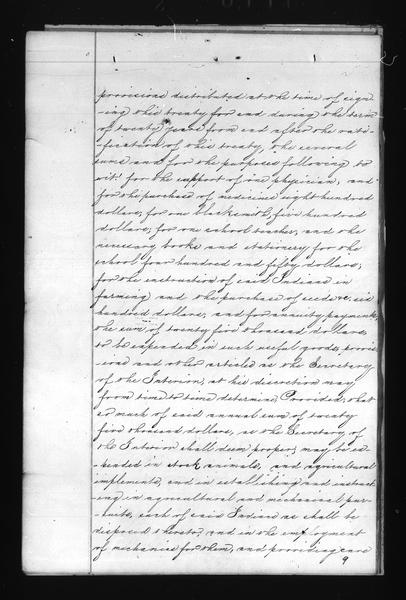 provisions distributed at the time of sign-
-ing this treaty for and during the term
of twenty years from and after the rati-
-fication of this treaty, the several
sums and for the purposes following to
wit: for the support of one physician, and
for the purchase of medicines eight hundred
dollars; for one blacksmith, five hundred
dollars; for one school teacher, and the
necessary books and stationery for the
school four hundred and fifty dollars;
for the instruction of said Indians in
farming and the purchase of seeds &c. six
hundred dollars; and for annuity payments,
the sum of twenty five thousand dollars,
to be expended in such useful goods, provis-
-ions and other articles as the Secretary
of the Interior, at his discretion may
from time to time determine; Provided, that
so much of said annual sum of twenty
five thousand dollars, as the Secretary of
the Interior shall deem proper, may be ex-
-pended in stock animals, and agricultural
implements, and in establishing and instruct-
-ing in agricultural and mechanical pur-
-suits, such of said Indians as shall be
disposed thereto; and in the employment
of mechanics for them, and providing care
9